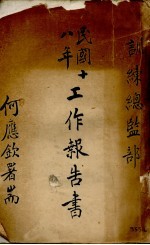 訓練總監部
民國十八年
工作報告書
何應欽署耑